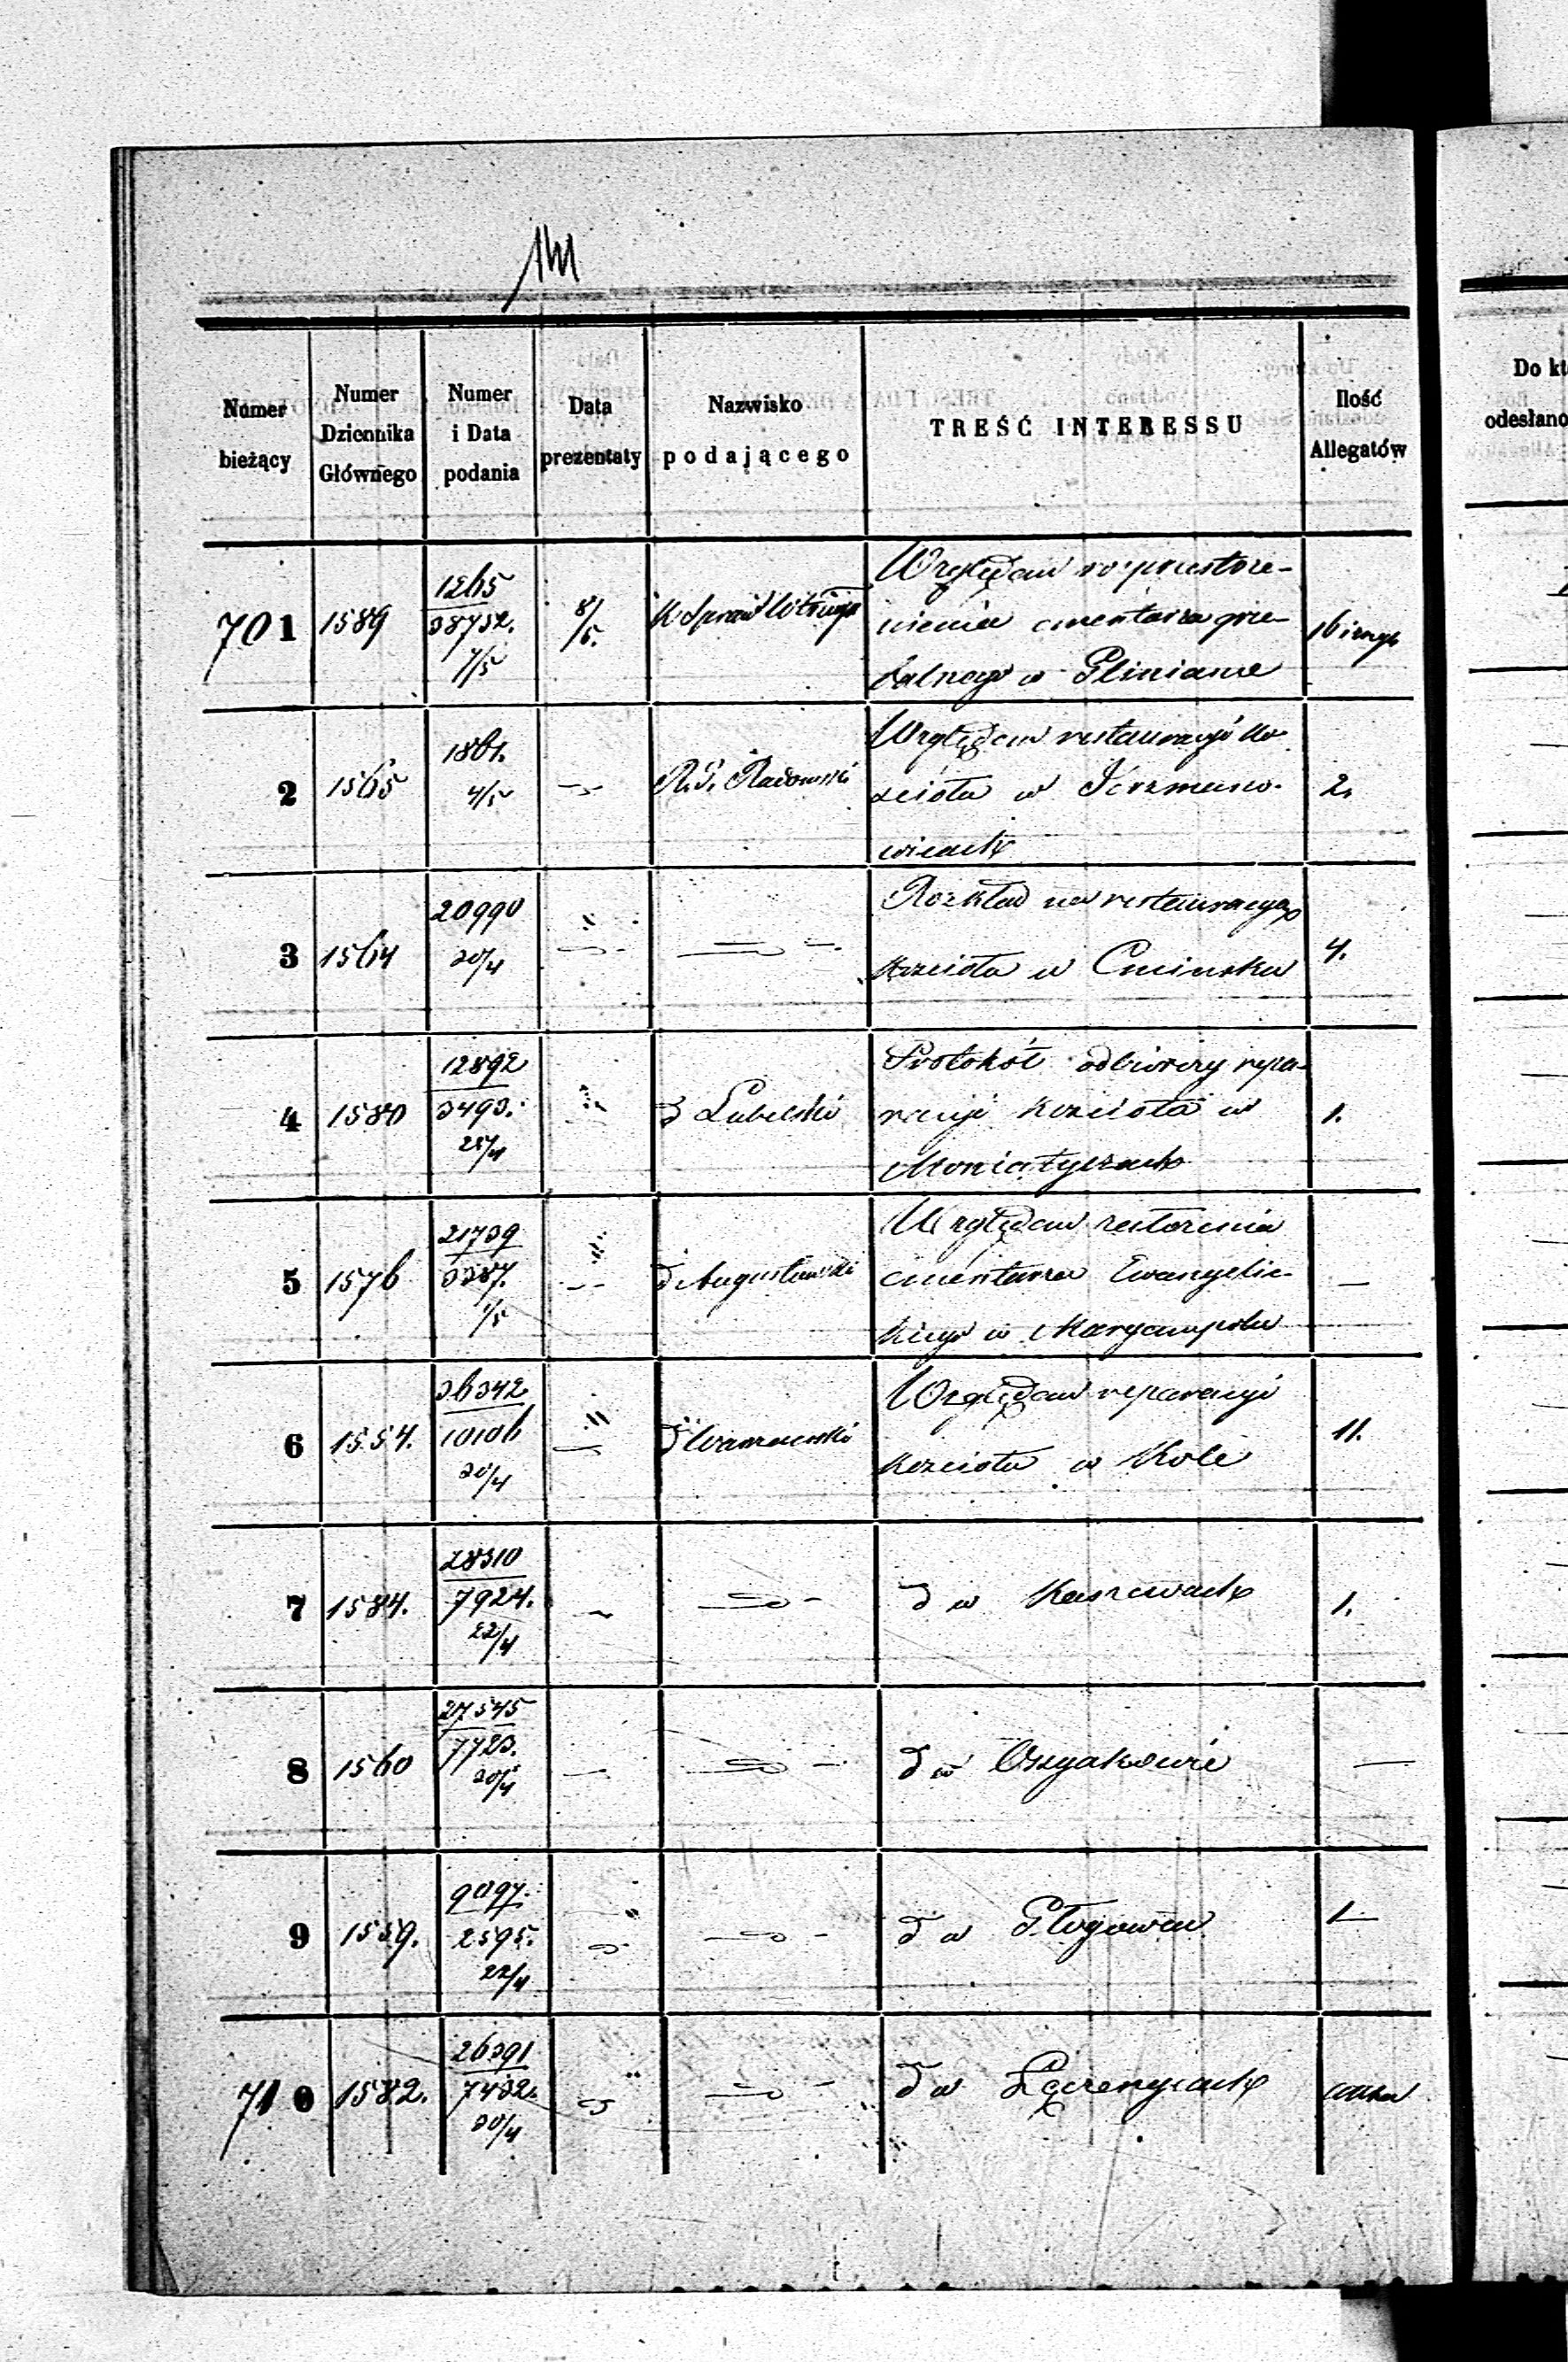 141
Numer bieżący
Numer Dziennika Głównego
Numer i Data podania
Data prezentaty
Nazwisko podającego
TREŚĆ INTERESSU
Ilość Allegatów
Do
odesłano
701 1589
1265
38732.
7/5
8/5.
K Spraw
Względem rosprzestrze-
nienia cmentarza grze-
balnego w Glinianie
16
2 1565
1861.
4/5
R. G. Radomski
Względem restauracyi ko
ścioła w
wicach
2.
3 1564
20990
30/4
Rozkład na restauracyą
Kościoła w Cmińsku
4.
4 1580
12892
3493.
25/4
d Lubelski
Protokół odbiorczy repa-
racyi Kościoła w
Moniatyczach
1.
5 1576
21739
3387.
1/5
d Augustowski
Względem
cmentarza Ewangelic-
kiego w Maryampolu
—
6 1554.
36342
10106
30/4
d Warszawski
Względem reparacyi
Kościoła w Kole
11.
7 1584.
28310
7924.
22/4
d w Kaszewach
1.
8 1560
27545
7723.
20/4
d w Osyakowie
—
9 1559.
9097.
2595.
22/4
d w Głogowcu
1
710 1582.
26391
7432.
30/4
d w